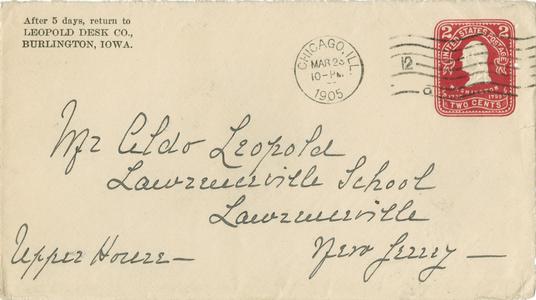 After 5 days, return to
LEOPOLD DESK CO.,
BURLINGTON, IOWA.
CHICAGO, ILL.
MAR 23
10-PM
1905
12
2 UNITED STATES POSTAGE 2
WASHINGTON
TWO CENTS
Mr Aldo Leopold
Lawrenceville School
Lawrenceville
Upper House — New Jersey —